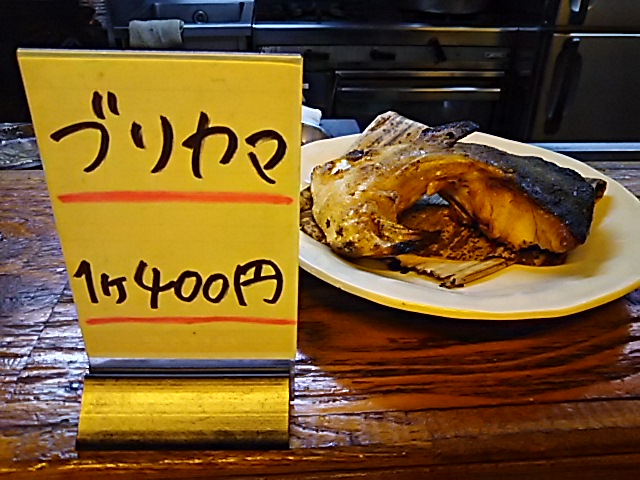 ブリカマ
1ヶ400円